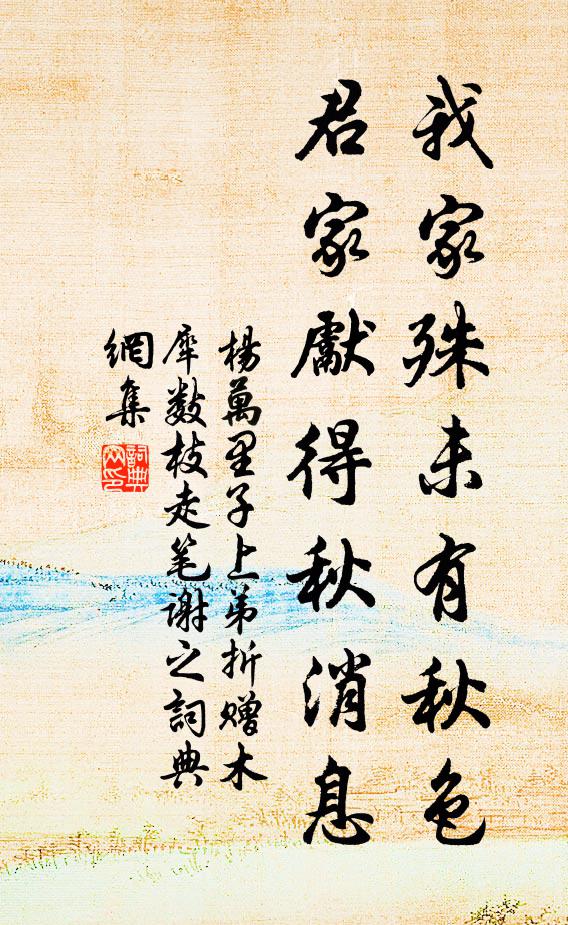 我家殊未有秋色
君家獻得秋消息
楊萬里子上弟折贈木
犀數枝走笔謝之詞典
網集
詞典
网印